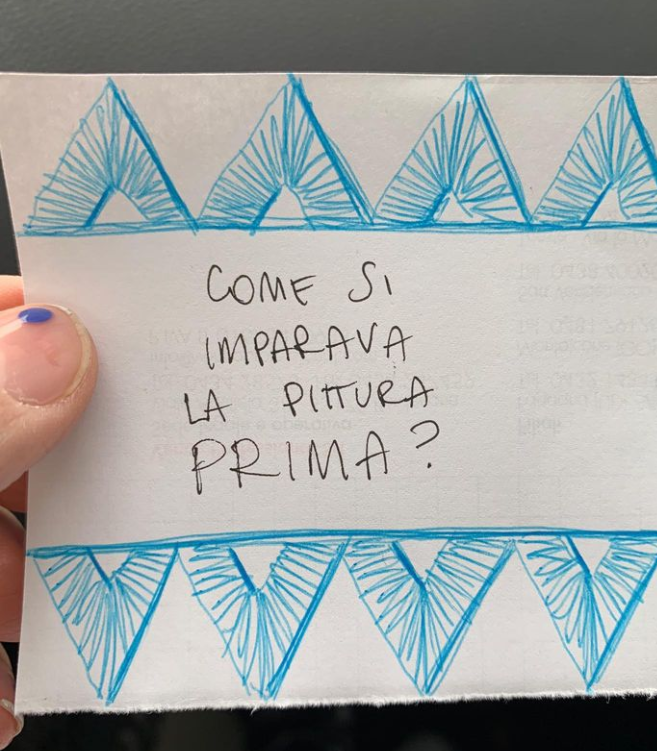 COME SI
IMPARAVA
LA PITTURA
PRIMA?